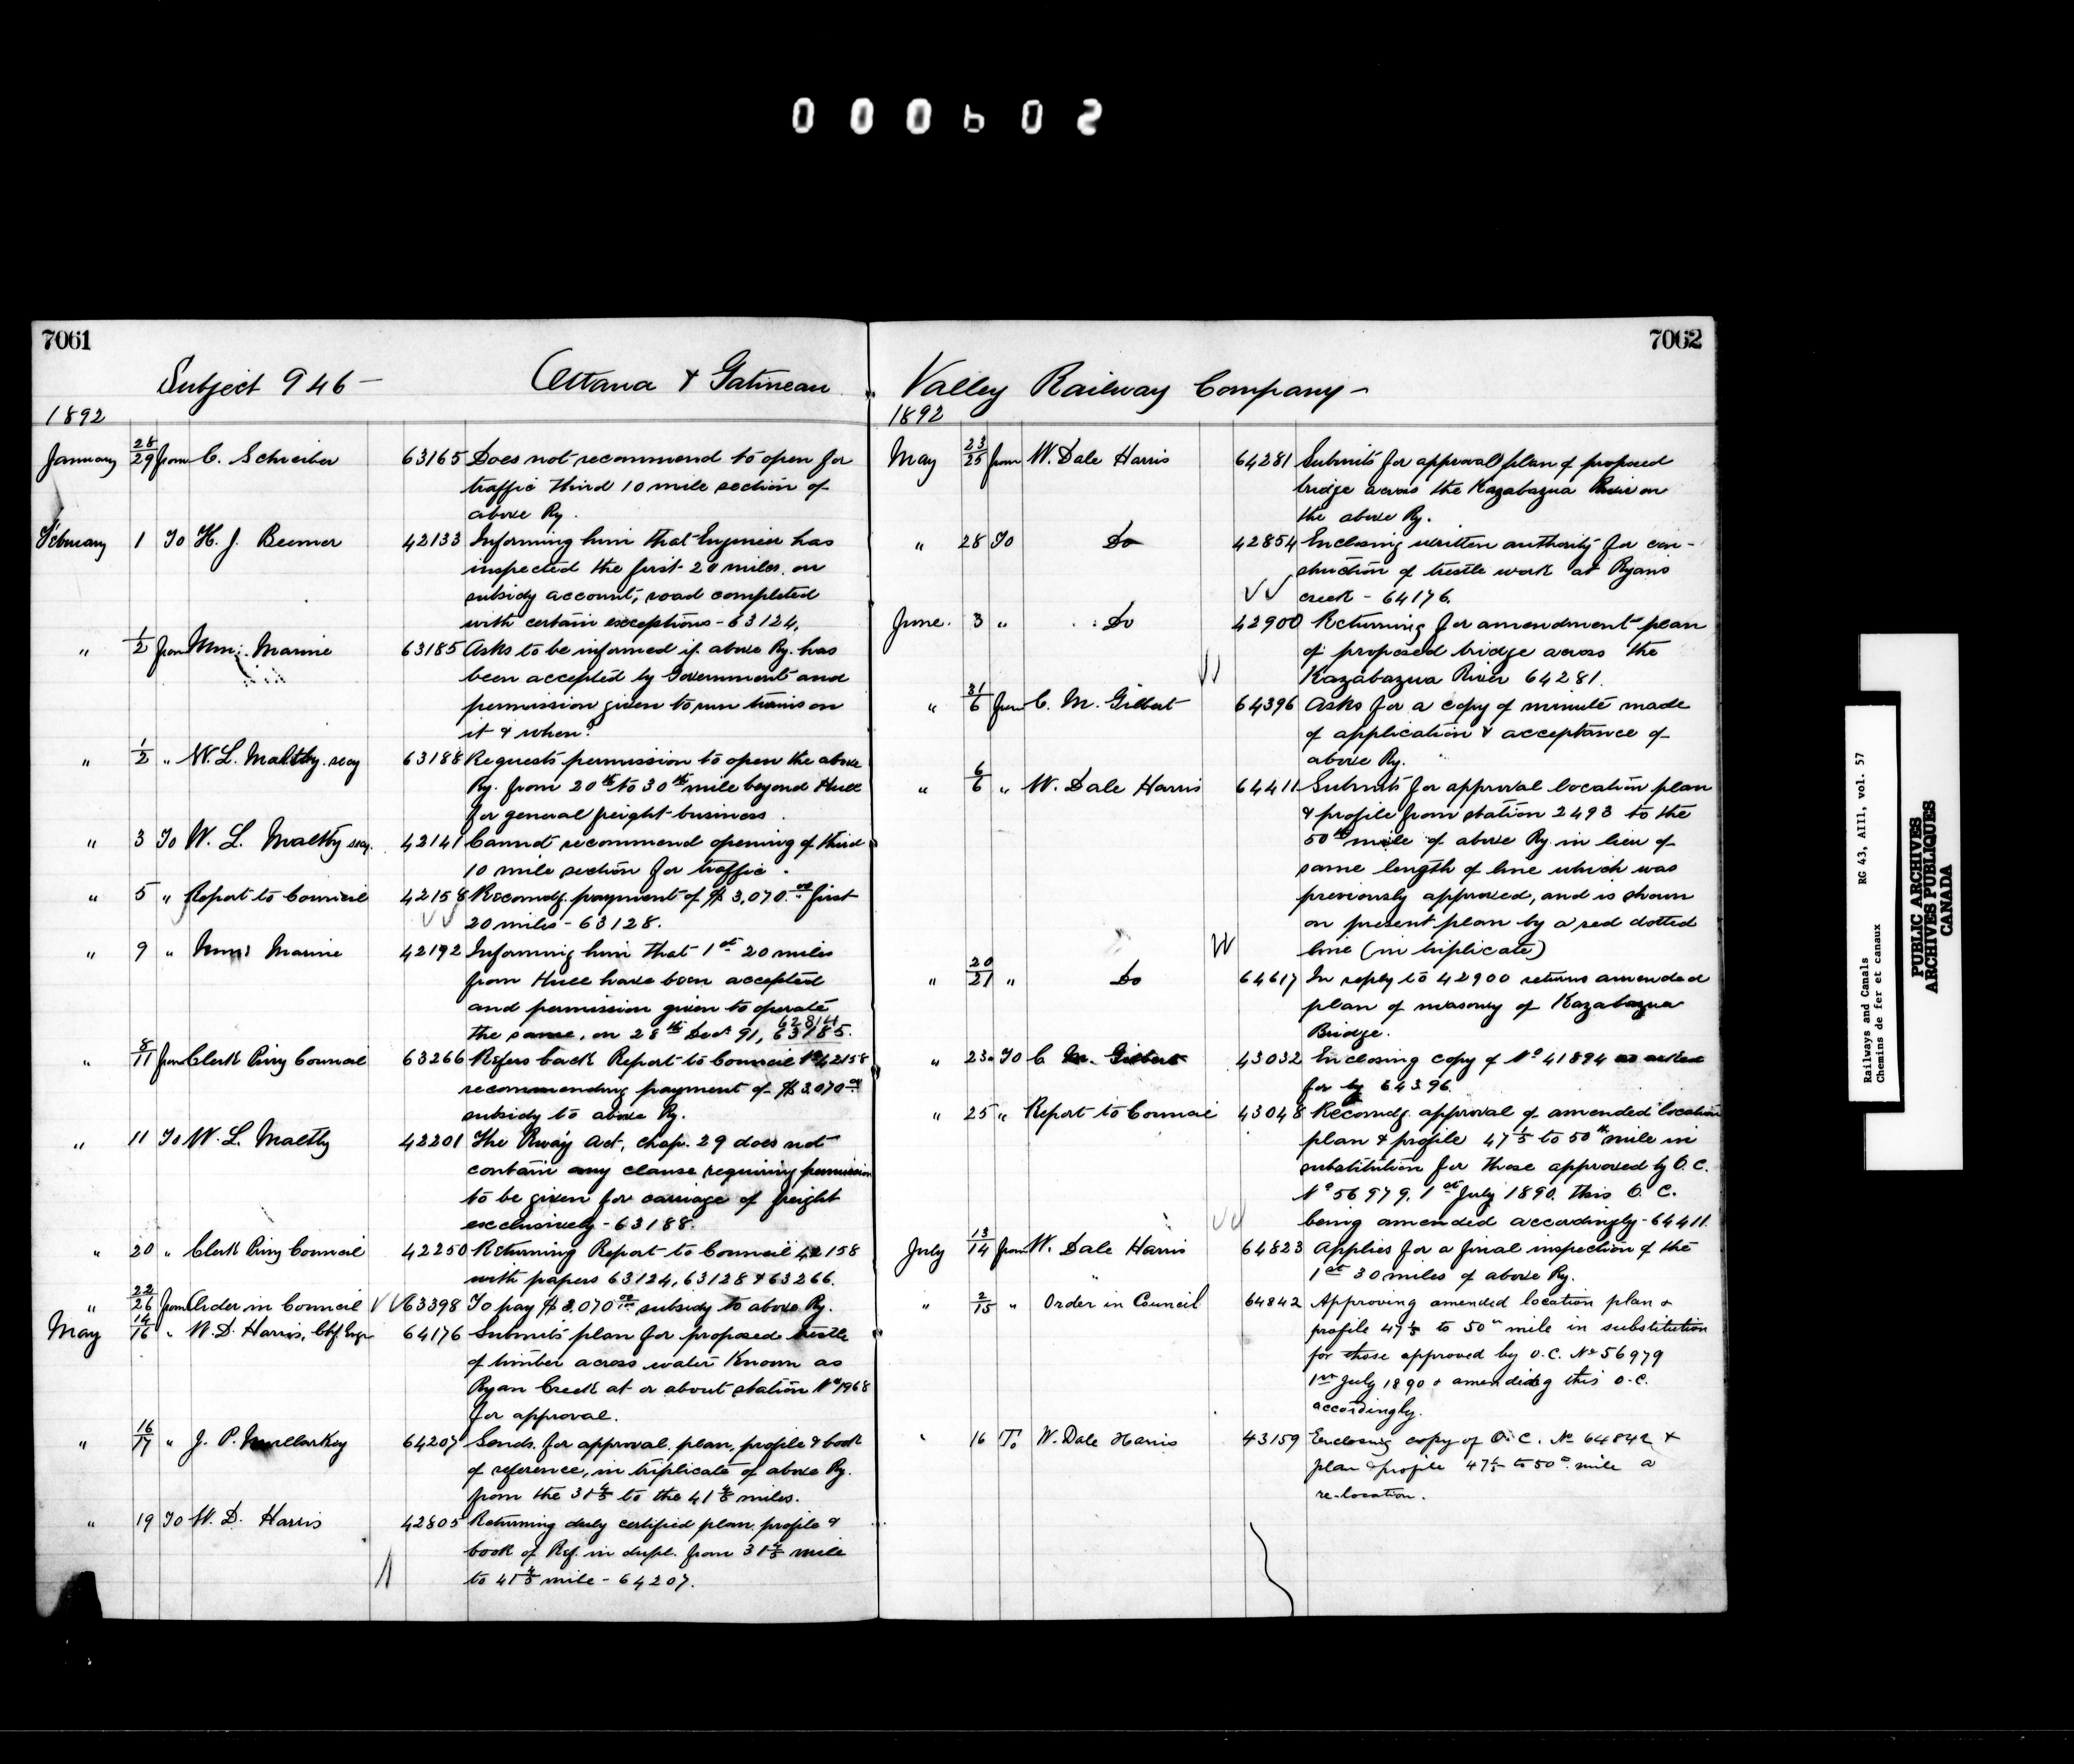 000602
7061
Subject 946 — Ottawa & Gatineau
1892
January 28/29 from C. Schreiber 63165 Does not recommend to open for
traffic third 10 mile section of
above Ry.
February 1 To H. J. Beemer 42133 Informing him that Engineer has
inspected the first 20 miles on
subsidy account, road completed
with certain exceptions - 63124.
" 1/2 from Minr. Marine 63185 Asks to be informed if above Ry. has
been accepted by Government and
permission given to run trains on
it & when?
" 1/2 " W. L. Maltby. secy 63188 Requests permission to open the above
Ry. from 20th to 30th mile beyond Hull
for general freight business.
" 3 To W. L. Maltby secy. 42141 Cannot recommend opening of third
10 mile section for traffic.
" 5 " Report to Council 42158 Recomdg. payment of $3,070.00 first
20 miles - 63128.
" 9 " Minr Marine 42192 Informing him that 1st 20 miles
from Hull have been accepted
and permission given to operate
62814
the same, on 28th Decr 91, 63185.
" 8/11 from Clerk Privy Council 63266 Refers back Report to Council No 42158
recommending payment of $3,070.00
subsidy to above Ry.
" 11 To W. L. Maltby 42201 The Rway Act, chap. 29 does not
contain any clause requiring permission
to be given for carriage of freight
exclusively - 63188.
" 20 " Clerk Privy Council 42250 Returning Report to Council 42158
with papers 63124, 63128 & 63266.
" 22/26 from Order in Council 63398 To pay $3,070.00 subsidy to above Ry.
May 14/16 " W. D. Harris, Chf. Engr 64176 Submits plan for proposed trestle
of timber across water known as
Ryan Creek at or about station No 1968
for approval.
" 16/17 " J. P. Mullarkey 64207 Sends for approval, plan, profile & book
of reference, in triplicate of above Ry.
from the 31 4/5 to the 41 4/5 miles.
" 19 To W. D. Harris 42805 Returning duly certified plan, profile &
book of Ref. in dupl. from 31 4/5 mile
to 41 4/5 mile - 64207.
7062
Valley Railway Company —
1892
May 23/25 from W. Dale Harris 64281 Submits for approval plan of proposed
bridge across the Kazabazua River on
the above Ry.
" 28 To Do 42854 Enclosing written authority for con-
struction of trestle work at Ryans
creek - 64176.
June. 3 " Do 42900 Returning for amendment plan
of proposed bridge across the
Kazabazua River 64281.
" 31/6 from C. M. Gilbert 64396 Asks for a copy of minute made
of application & acceptance of
above Ry.
" 6/6 " W. Dale Harris 64411 Submits for approval location plan
& profile from station 2493 to the
50th mile of above Ry. in lieu of
same length of line which was
previously approved, and is shown
on present plan by a red dotted
line (in triplicate)
" 20/21 " Do 64617 In reply to 42900 returns amended
plan of masonry of Kazabazua
Bridge.
" 23 To C. M. Gilbert 43032 Enclosing copy of No 41894 as asked
for by 64396.
" 25 " Report to Council 43048 Recomdg. approval of amended location
plan & profile 47 1/5 to 50th mile in
substitution for those approved by O.C.
No 56979, 1st July 1890, this O. C.
being amended accordingly - 64411.
July 13/14 from W. Dale Harris 64823 Applies for a final inspection of the
1st 30 miles of above Ry.
" 2/15 " Order in Council 64842 Approving amended location plan &
profile 47 1/5 to 50th mile in substitution
for those approved by O.C. No 56979
1st July 1890 & amending this O.C.
accordingly.
" 16 To W. Dale Harris 43159 Enclosing copy of O.C. No 64842 &
plan & profile 47 1/5 to 50th mile a
re-location.
Railways and Canals RG 43, AIII, vol. 57
Chemins de fer et canaux
PUBLIC ARCHIVES
ARCHIVES PUBLIQUES
CANADA